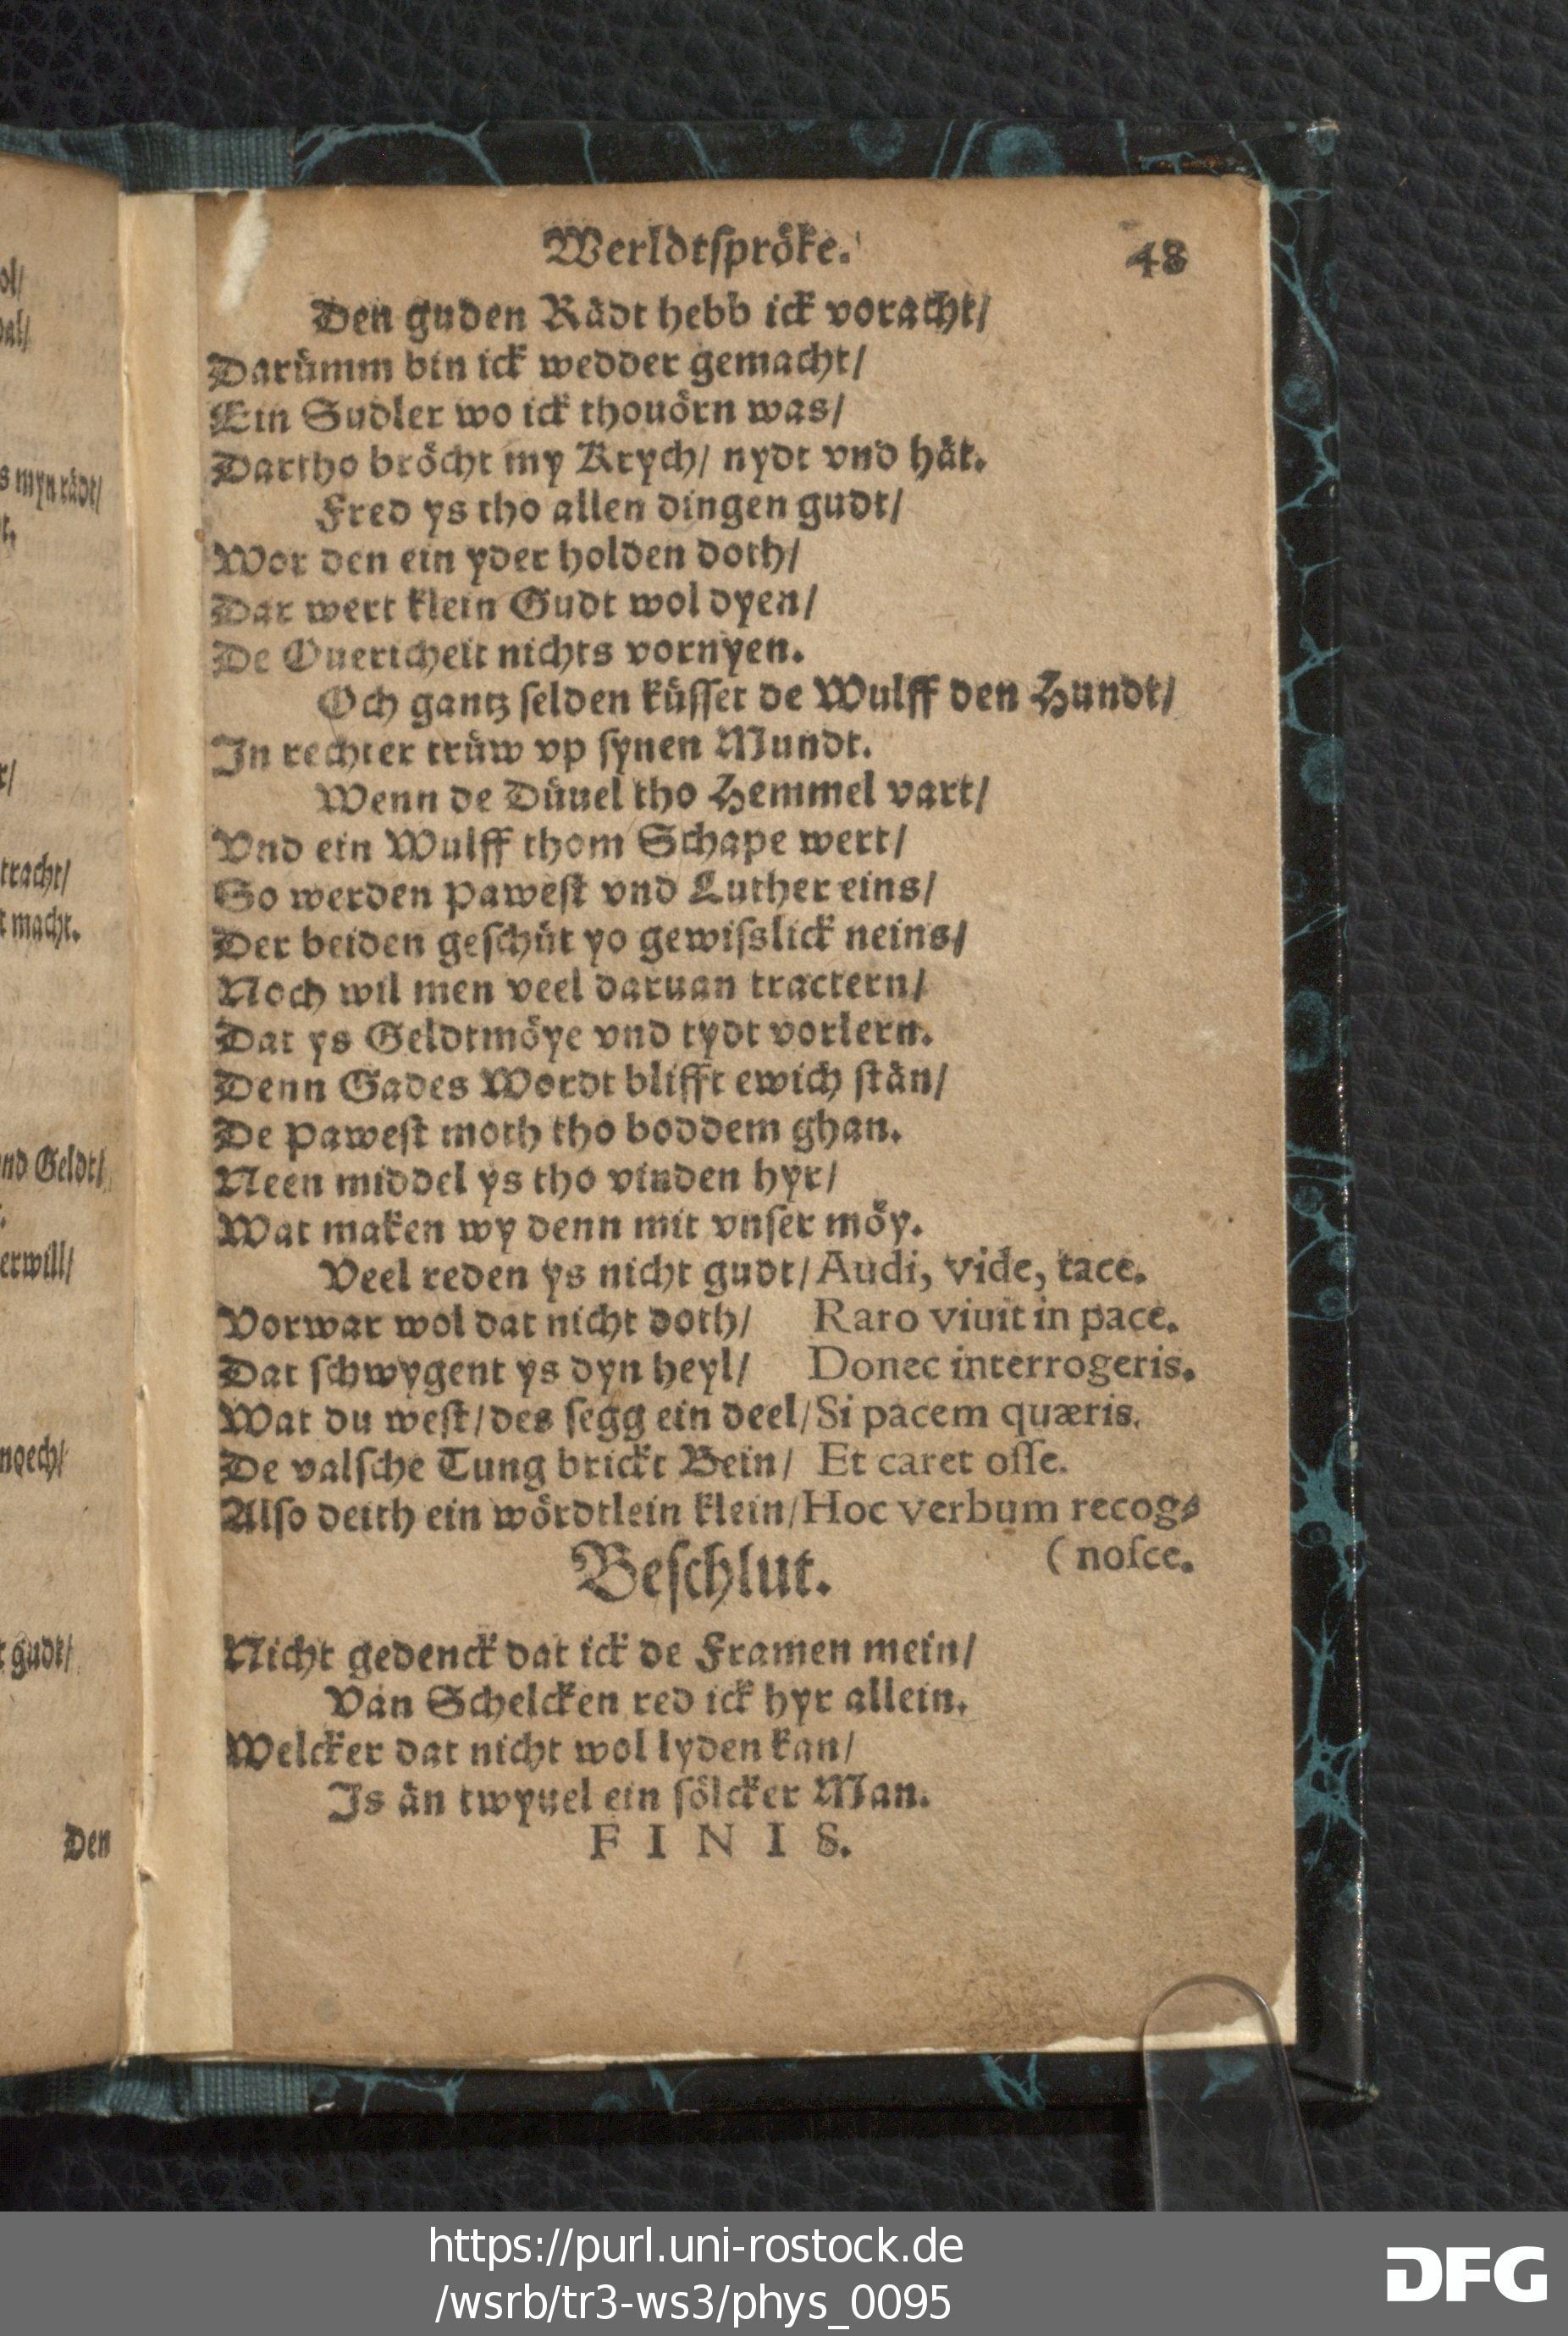 Werldtspröke. 48
Den guden Rädt hebb ick voracht/
Darümm bin ick wedder gemacht/
Ein Sudler wo ick thouörn was/
Dartho bröcht my Krych/ nydt vnd hät.
Fred ys tho allen dingen gudt/
Wor den ein yder holden doth/
Dar wert klein Gudt wol dyen/
De Ouericheit nichts vornyen.
Och gantz selden küsset de Wulff den Hundt/
In rechter trüw vp synen Mundt.
Wenn de Düuel tho Hemmel vart/
Vnd ein Wulff thom Schape wert/
So werden Pawest vnd Luther eins/
Der beiden geschüt yo gewisslick neins/
Noch wil men veel daruan tractern/
Dat ys Geldtmöye vnd tydt vorlern.
Denn Gades Wordt blifft ewich stän/
De Pawest moth tho boddem ghan.
Neen middel ys tho vinden hyr/
Wat maken wy denn mit vnser möy.
Veel reden ys nicht gudt/ Audi, vide, tace.
Vorwar wol dat nicht doth/ Raro viuit in pace.
Dat schwygent ys dyn heyl/ Donec interrogeris.
Wat du west/ des segg ein deel/ Si pacem quæris.
De valsche Tung brickt Bein/ Et caret osse.
Also deith ein wördtlein klein/ Hoc verbum recog-
(nosce.
Beschlut.
Nicht gedenck dat ick de Framen mein/
Van Schelcken red ick hyr allein.
Welcker dat nicht wol lyden kan/
Is än twyuel ein sölcker Man.
FINIS.
ol/
al/
s myn rädt/
t.
r/
tracht/
t macht.
nd Geldt/
erwill/
noech/
t gudt/
Den
https://purl.uni-rostock.de
/wsrb/tr3-ws3/phys_0095
DFG